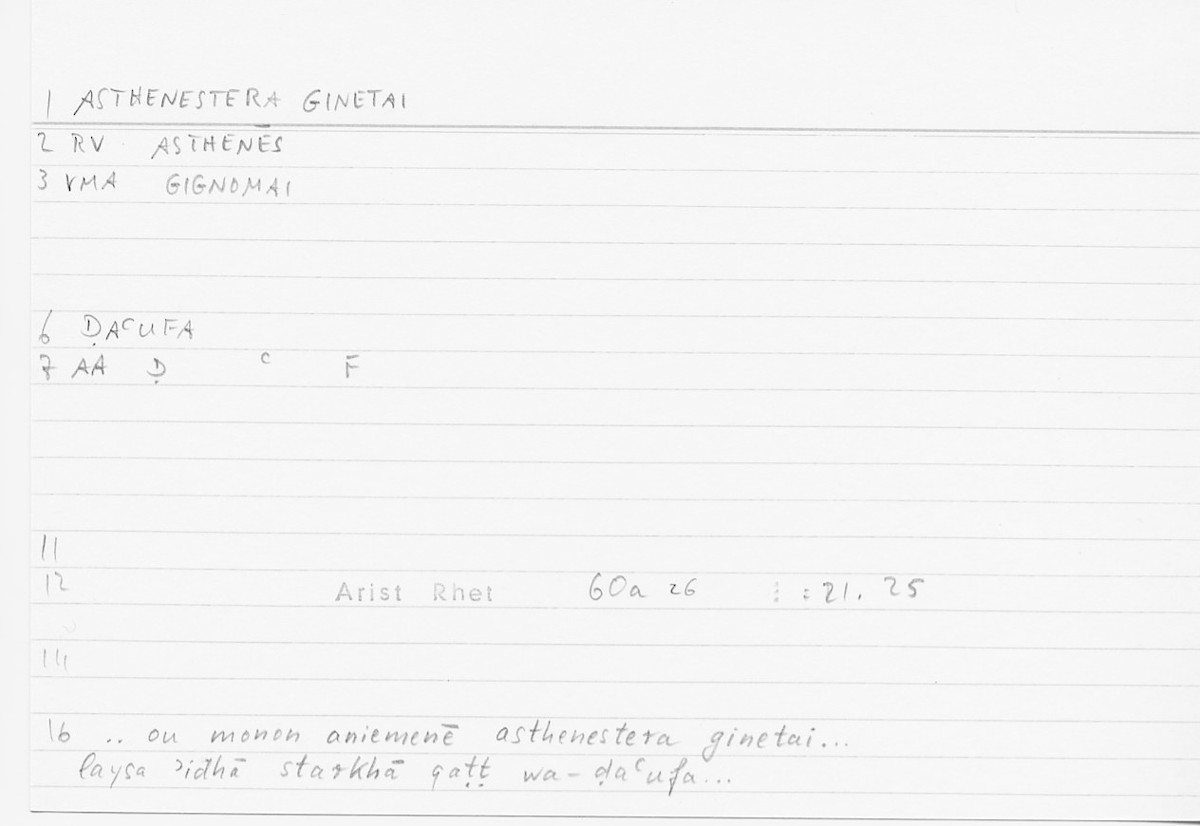 1 ASTHENESTERA GINETAI
2 RV ASTHENĒS
3 VMA GIGNOMAI
6 ḌAʿUFA
7 AA Ḍ ʿ F
11
12 Arist Rhet 60a 26 : 21. 25
14
16 .. ou monon aniemenē asthenestera ginetai...
laysa ʾidhā starkhā qaṭṭ wa-ḍaʿufa...